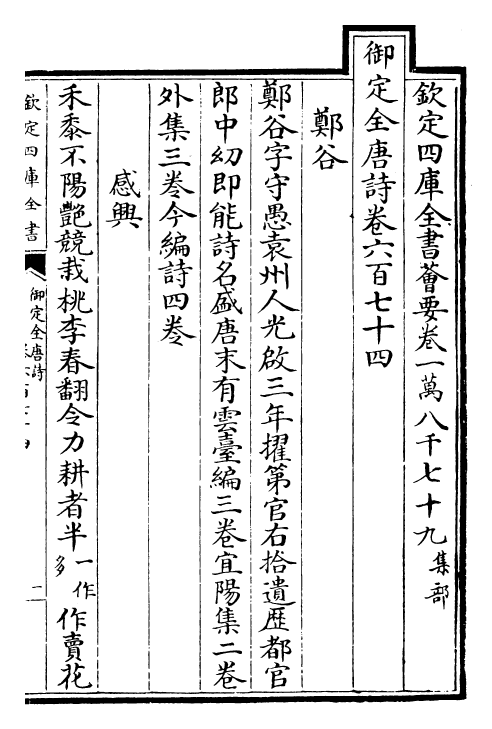 欽定四庫全書薈要卷一萬八千七十九 集部
御定全唐詩卷六百七十四
鄭谷
鄭谷字守愚袁州人光啟三年擢第官右拾遺歷都官
郎中幼即能詩名盛唐末有雲臺編三卷宜陽集二卷
外集三卷今編詩四卷
感興
禾黍不陽艷競栽桃李春翻令力耕者半一作多作賣花
欽定四庫全書
御定全唐詩
卷六百七十四